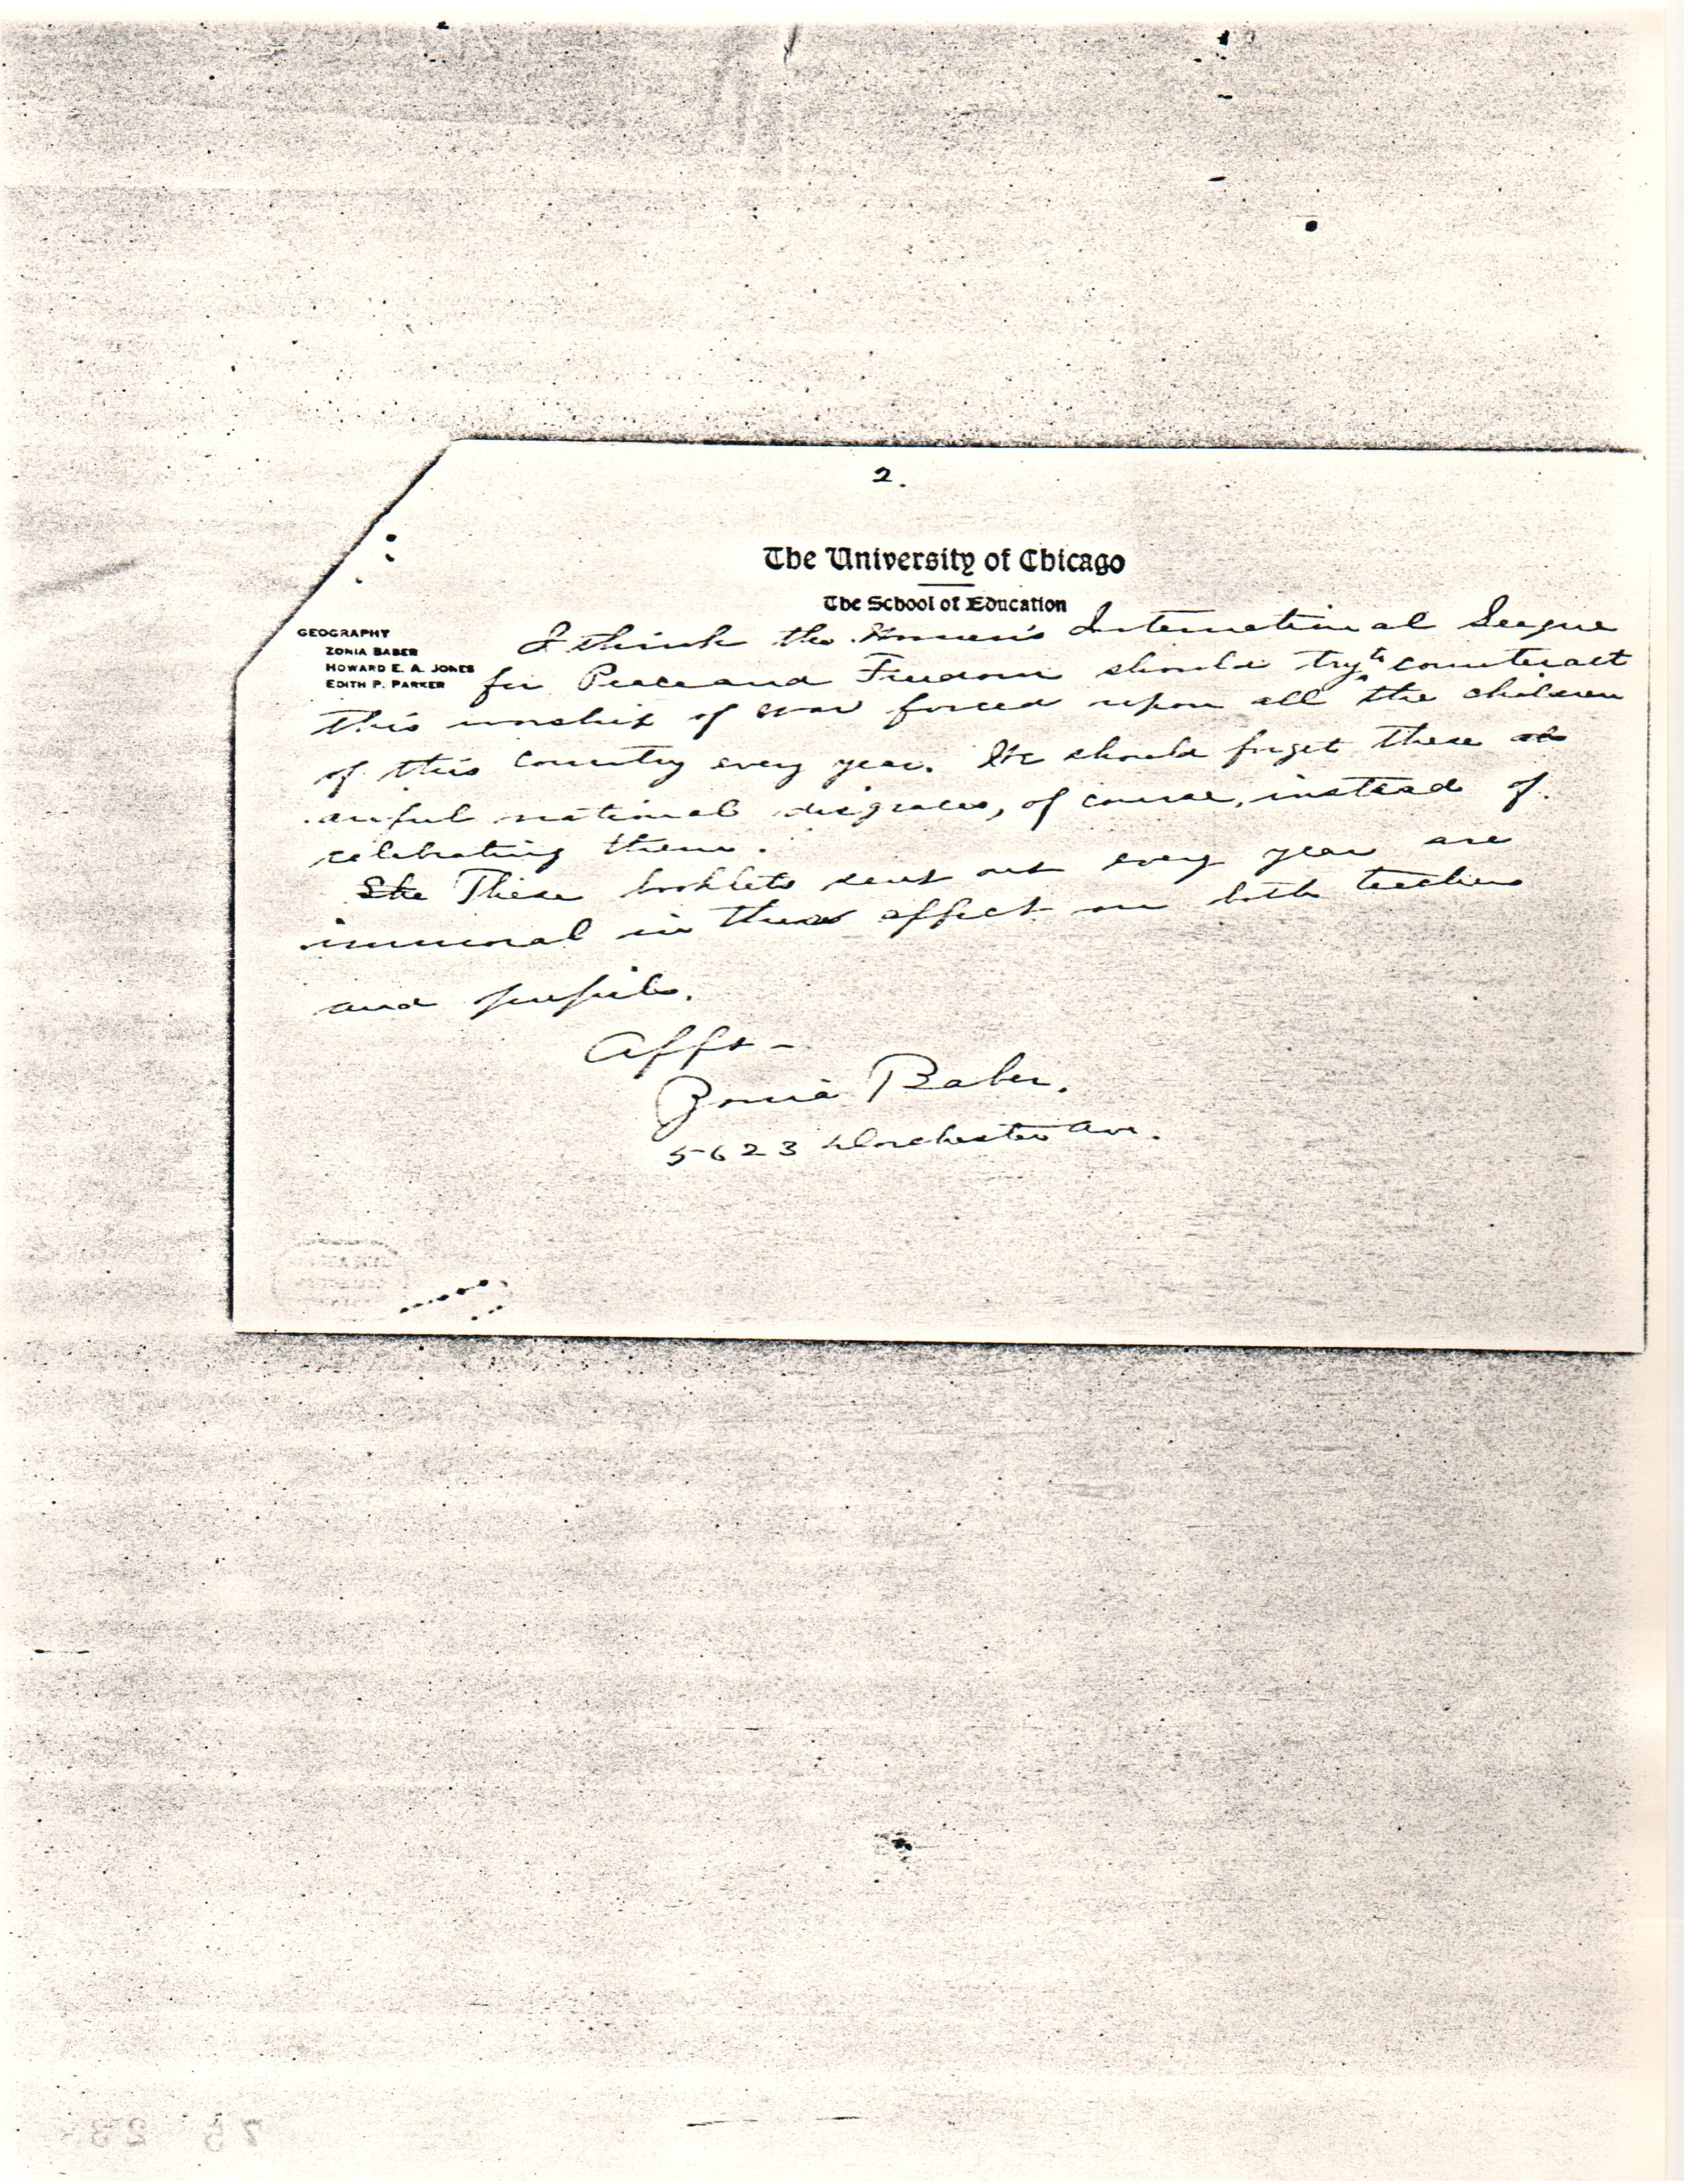 2.
The University of Chicago
The School of Education
GEOGRAPHY
ZONIA BABER
HOWARD E. A. JONES
EDITH P. PARKER
I think the Women's International League
for Peace and Freedom should try to counteract
this worship of war forced upon all the children
of this country every year. We should forget these
awful national disgraces, of course, instead of
celebrating them.
She These booklets sent out every year are
immoral in their affect on both teachers
and pupils.
Afft-
Zonia Baber.
5623 Dorchester Ave.
75 23